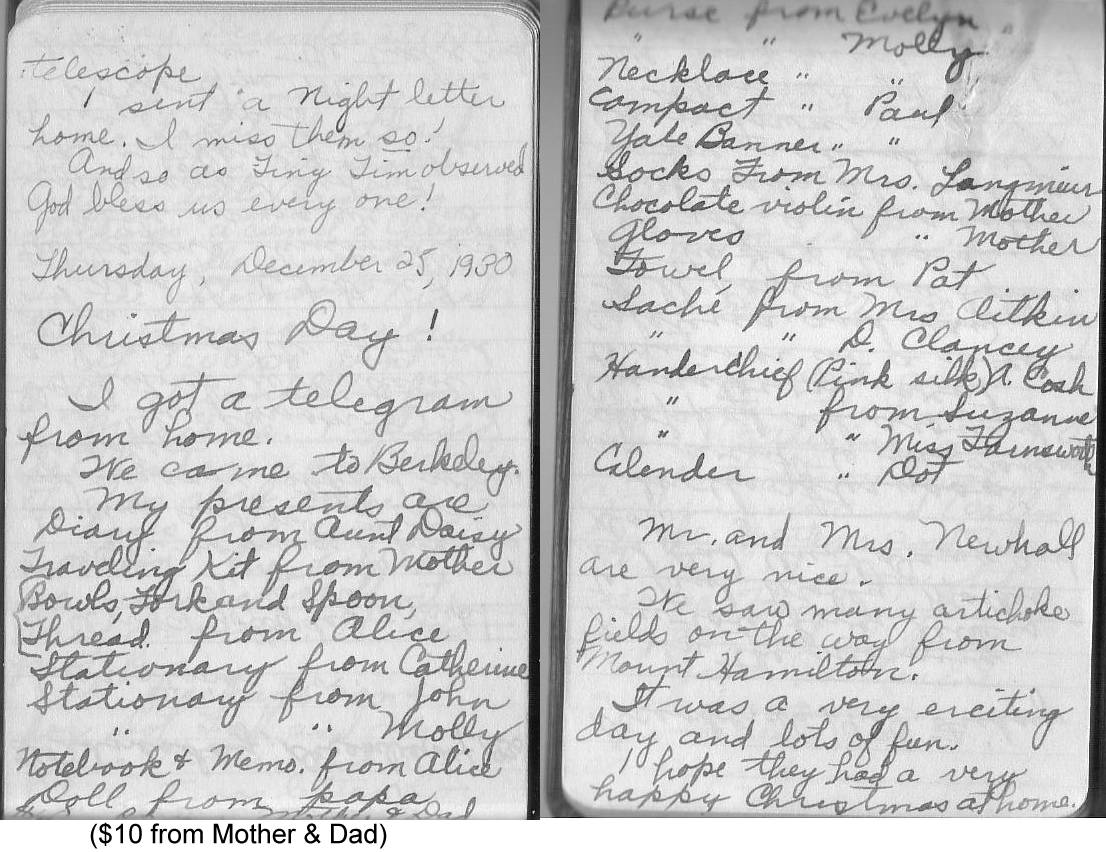 telescope
I sent a Night letter
home. I miss them so!
And so as Tiny Tim observed
God bless us every one!
Thursday, December 25, 1930
Christmas Day!
I got a telegram
from home.
We came to Berkeley.
My presents are
Diary from Aunt Daisy
Traveling Kit from Mother
Bowls, Fork and Spoon,
Thread from Alice
Stationary from Catherine
Stationary from John
" " Molly
Notebook & Memo. from Alice
Doll from papa
$10 from Mother & Dad
($10 from Mother & Dad)
Purse from Evelyn
" " Molly
Necklace " " "
Compact " Paul
Yale Banner " "
Socks From Mrs. Langmeur
Chocolate violin from Mother
Gloves " Mother
Towel from Pat
Saché from Mrs Aitkin
" " D. Clancey
Handerchief (Pink silk) A. Cosh
" from Suzanne
" " Miss Farnsworth
Calender " Dot
Mr. and Mrs. Newhall
are very nice.
We saw many artichoke
fields on the way from
Mount Hamilton.
It was a very exciting
day and lots of fun.
I hope they had a very
happy Christmas at home.